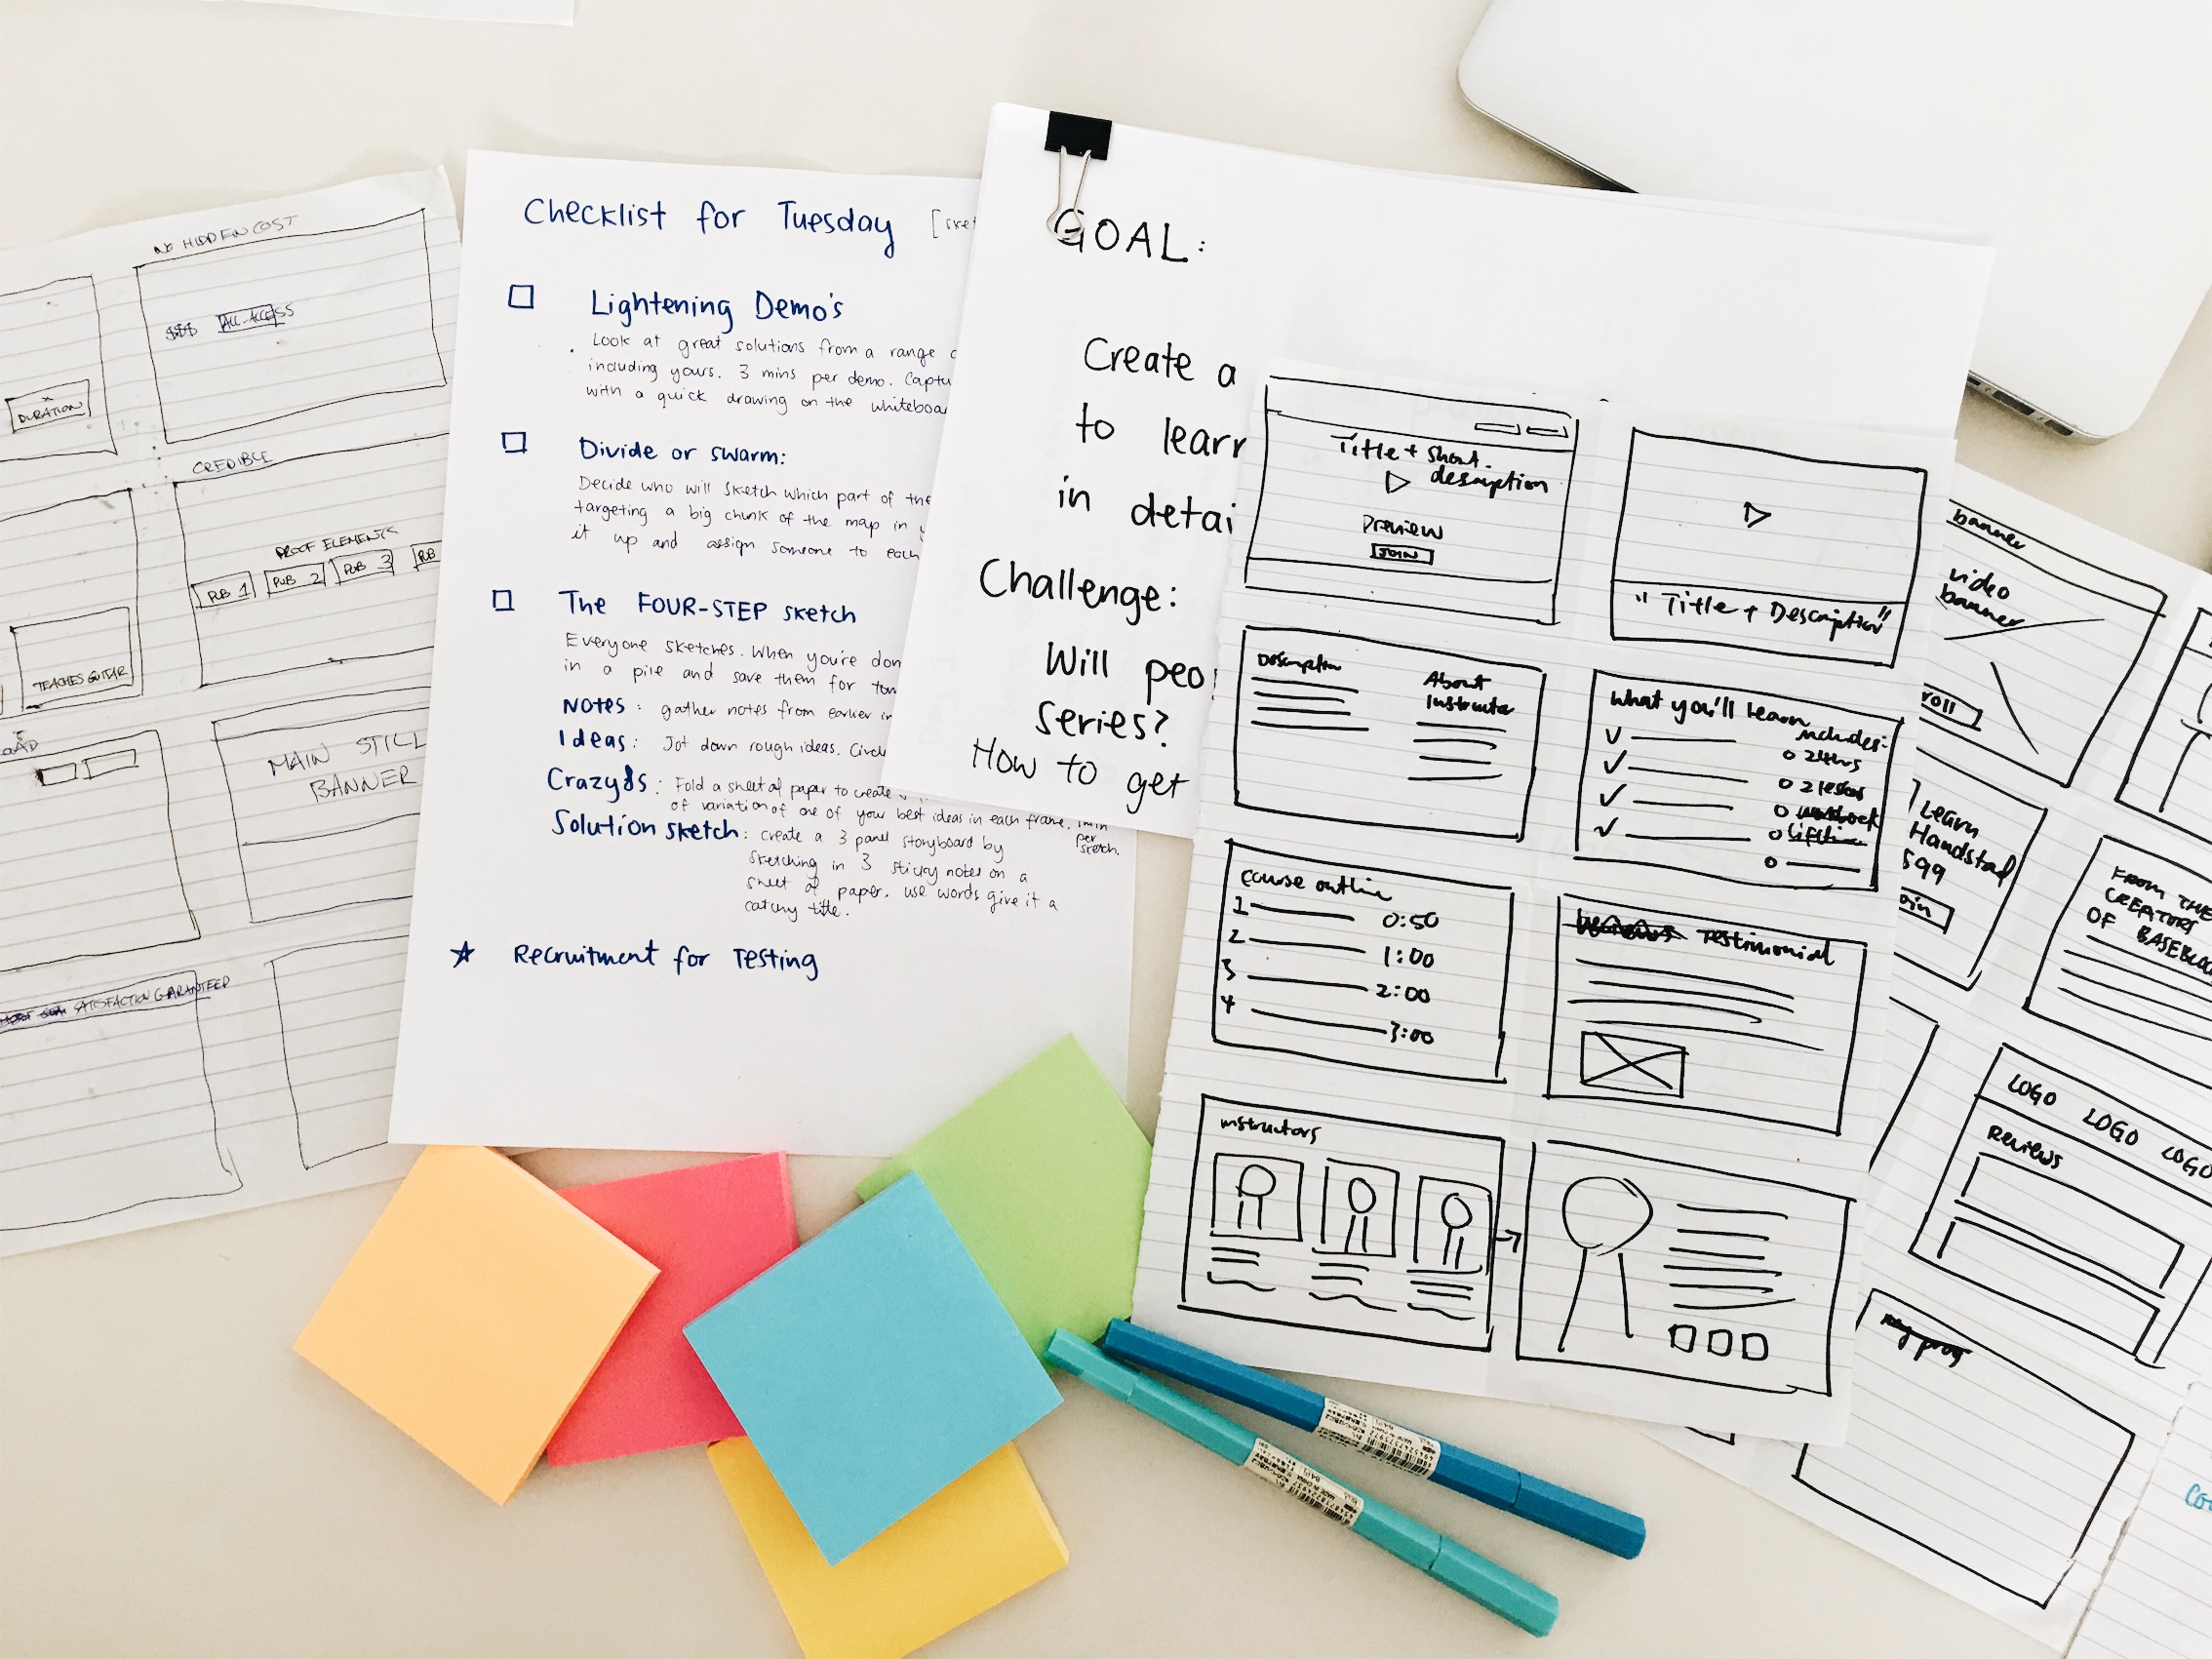 NO HIDDEN COST
$$$ ALL-ACCESS
DURATION
CREDIBLE
PROOF ELEMENTS
PUB 1 PUB 2 PUB 3 PUB
TEACHES GUITAR
MAIN STILL
BANNER
SATISFACTION GUARANTEED
Checklist for Tuesday
Lightening Demo's
Look at great solutions from a range
including yours. 3 mins per demo. Captu
with a quick drawing on the whiteboa
Divide or swarm:
Decide who will sketch which part of the
targeting a big chunk of the map in y
it up and assign someone to each
The FOUR-STEP sketch
Everyone sketches. When you're don
in a pile and save them for tom
Notes: gather notes from earlier in
Ideas: Jot down rough ideas. Circl
Crazy8s: Fold a sheet of paper to create
of variation of one of your best ideas in each frame. 1min
per
sketch.
Solution sketch: create a 3 panel storyboard by
sketching in 3 sticky notes on a
sheet of paper. use words give it a
catchy title.
★ Recruitment for Testing
GOAL:
Create a
to learn
in detai
Challenge:
Will peo
series?
How to get
Title + Short
description
Preview
JOIN
"Title + Description"
Description
About
Instructor
What you'll learn
includes:
24hrs
course outline
1 0:50
2 1:00
3 2:00
4 3:00
Testimonial
instructors
banner
video
banner
roll
Learn
Handstad
$99
oin
FROM THE
CREATORS
OF BASEBLOC
LOGO LOGO LOGO
Reviews